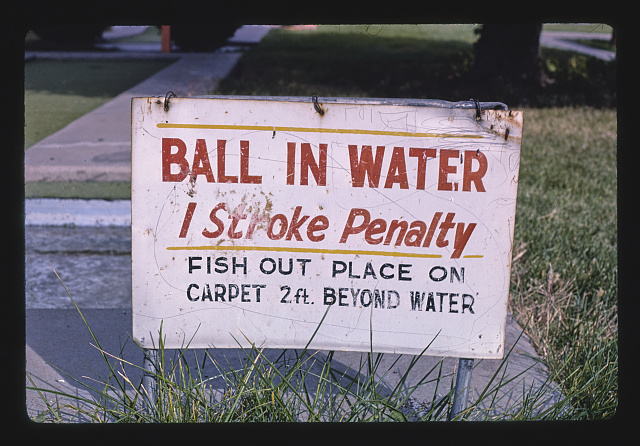 BALL IN WATER
1 Stroke Penalty
FISH OUT PLACE ON
CARPET 2ft. BEYOND WATER